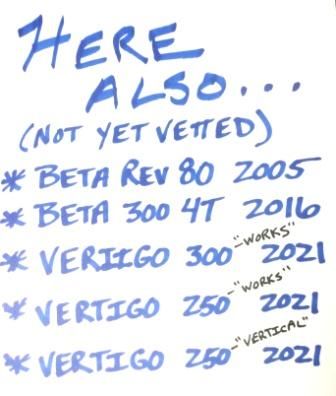 HERE
ALSO...
(NOT YET VETTED)
* BETA REV 80 2005
* BETA 300 4T 2016
* VERTIGO 300 -"WORKS" 2021
* VERTIGO 250 -"WORKS" 2021
* VERTIGO 250 -"VERTICAL" 2021